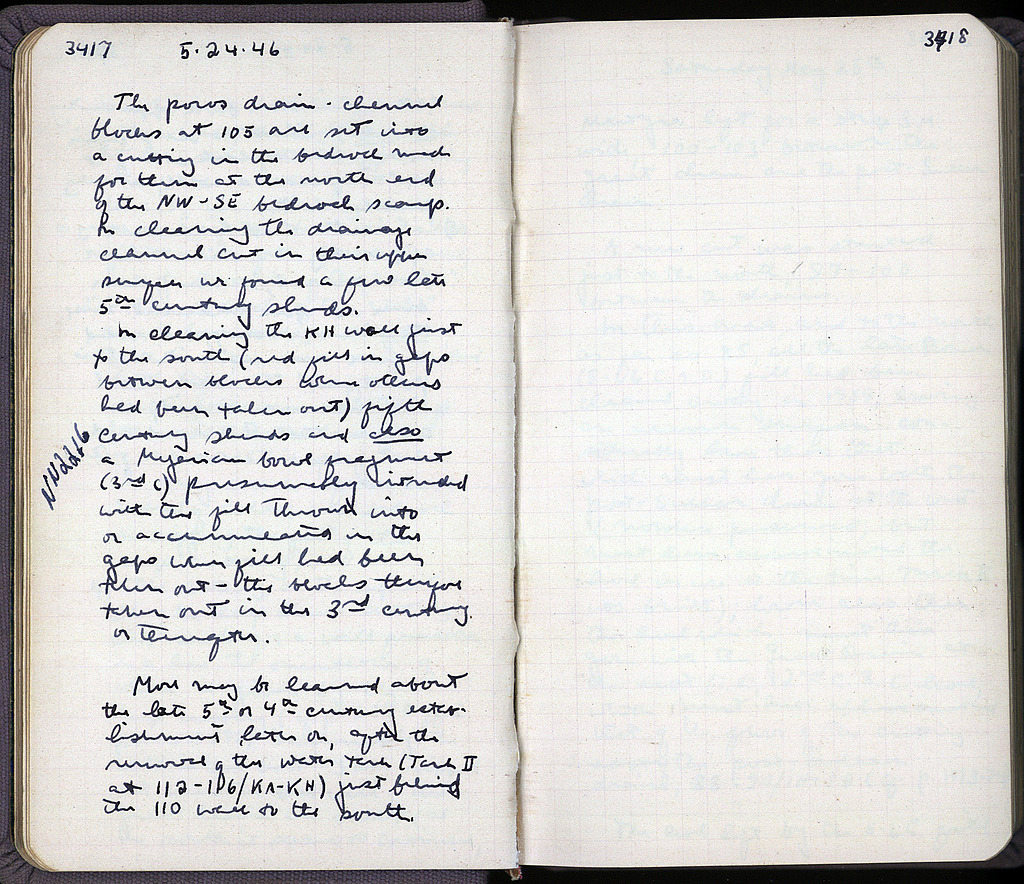 3417 5·24·46
The poros drain-channel
blocks at 105 are set into
a cutting in the bedrock made
for them at the north end
of the NW-SE bedrock scarp.
In cleaning the drainage
channel cut in their upper
surfaces we found a few late
5th century sherds.
In cleaning the KH wall just
to the south (red fill in gaps
between blocks where others
had been taken out) fifth
century sherds and also
NN2216
a Megarian bowl fragment
(3rd c) presumably intruded
with the fill thrown into
or accumulated in the
gaps when fill had been
taken out - the blocks therefore
taken out in the 3rd century.
or thereafter.
More may be learned about
the late 5th or 4th century estab-
lishment later on, after the
removal of the water tank (Tank II
at 112-106/KA-KH) just behind
the 110 wall to the south.
3418